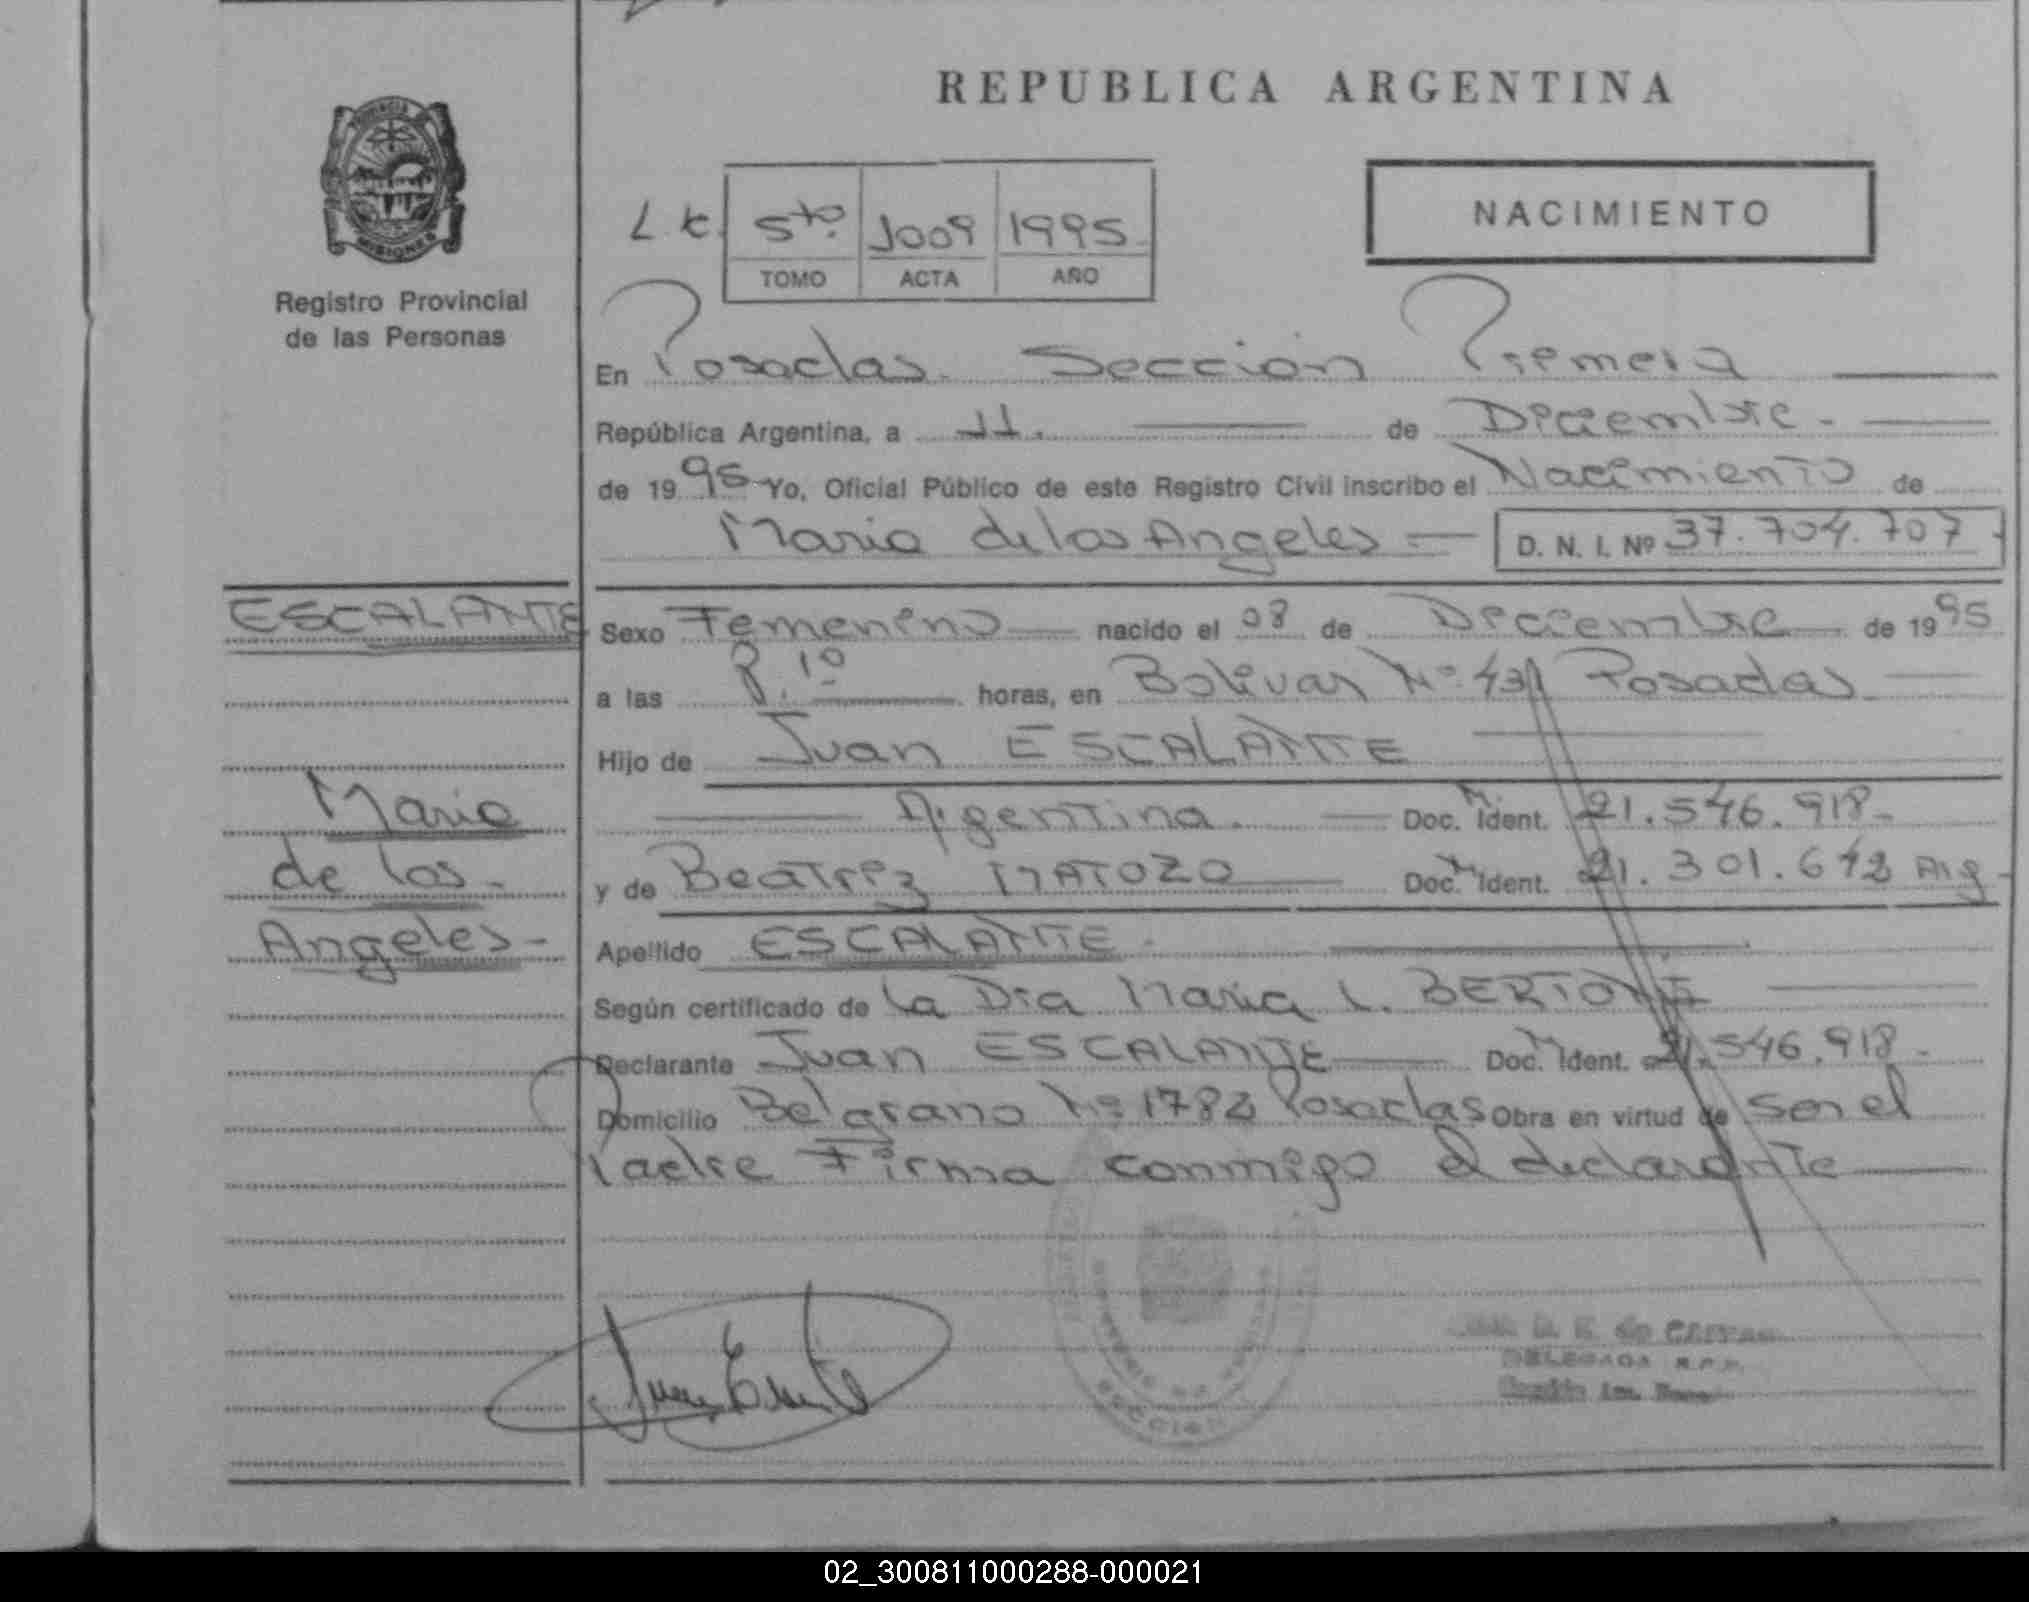 REPUBLICA ARGENTINA
PROVINCIA
MISIONES
Registro Provincial
de las Personas
NACIMIENTO
5to. 1009 1995
TOMO ACTA AÑO
En Posadas. Sección Primera
República Argentina, a 11. de Diciembre.
de 1995 Yo, Oficial Público de este Registro Civil inscribo el Nacimiento de
Maria de los Angeles D. N. I. Nº 37.704.707
ESCALANTE
Maria
de los
Angeles
Sexo Femenino nacido el 08 de Diciembre de 1995
a las horas, en Bolivar Nº 431 Posadas
Hijo de Juan ESCALANTE
Argentina. Doc. M. Ident. 21.546.918
y de Beatriz MATOZO Doc. M. Ident. 21.301.612 Arg
Apellido ESCALANTE
Según certificado de la Dra Maria L. BERTONI
Declarante Juan ESCALANTE Doc. M. Ident. 21.546.918
Domicilio Belgrano Nº 1782 Posadas Obra en virtud de ser el
Padre Firma conmigo el declarante
de
DELEGADA R.P.P.
SECCION
02_300811000288-000021